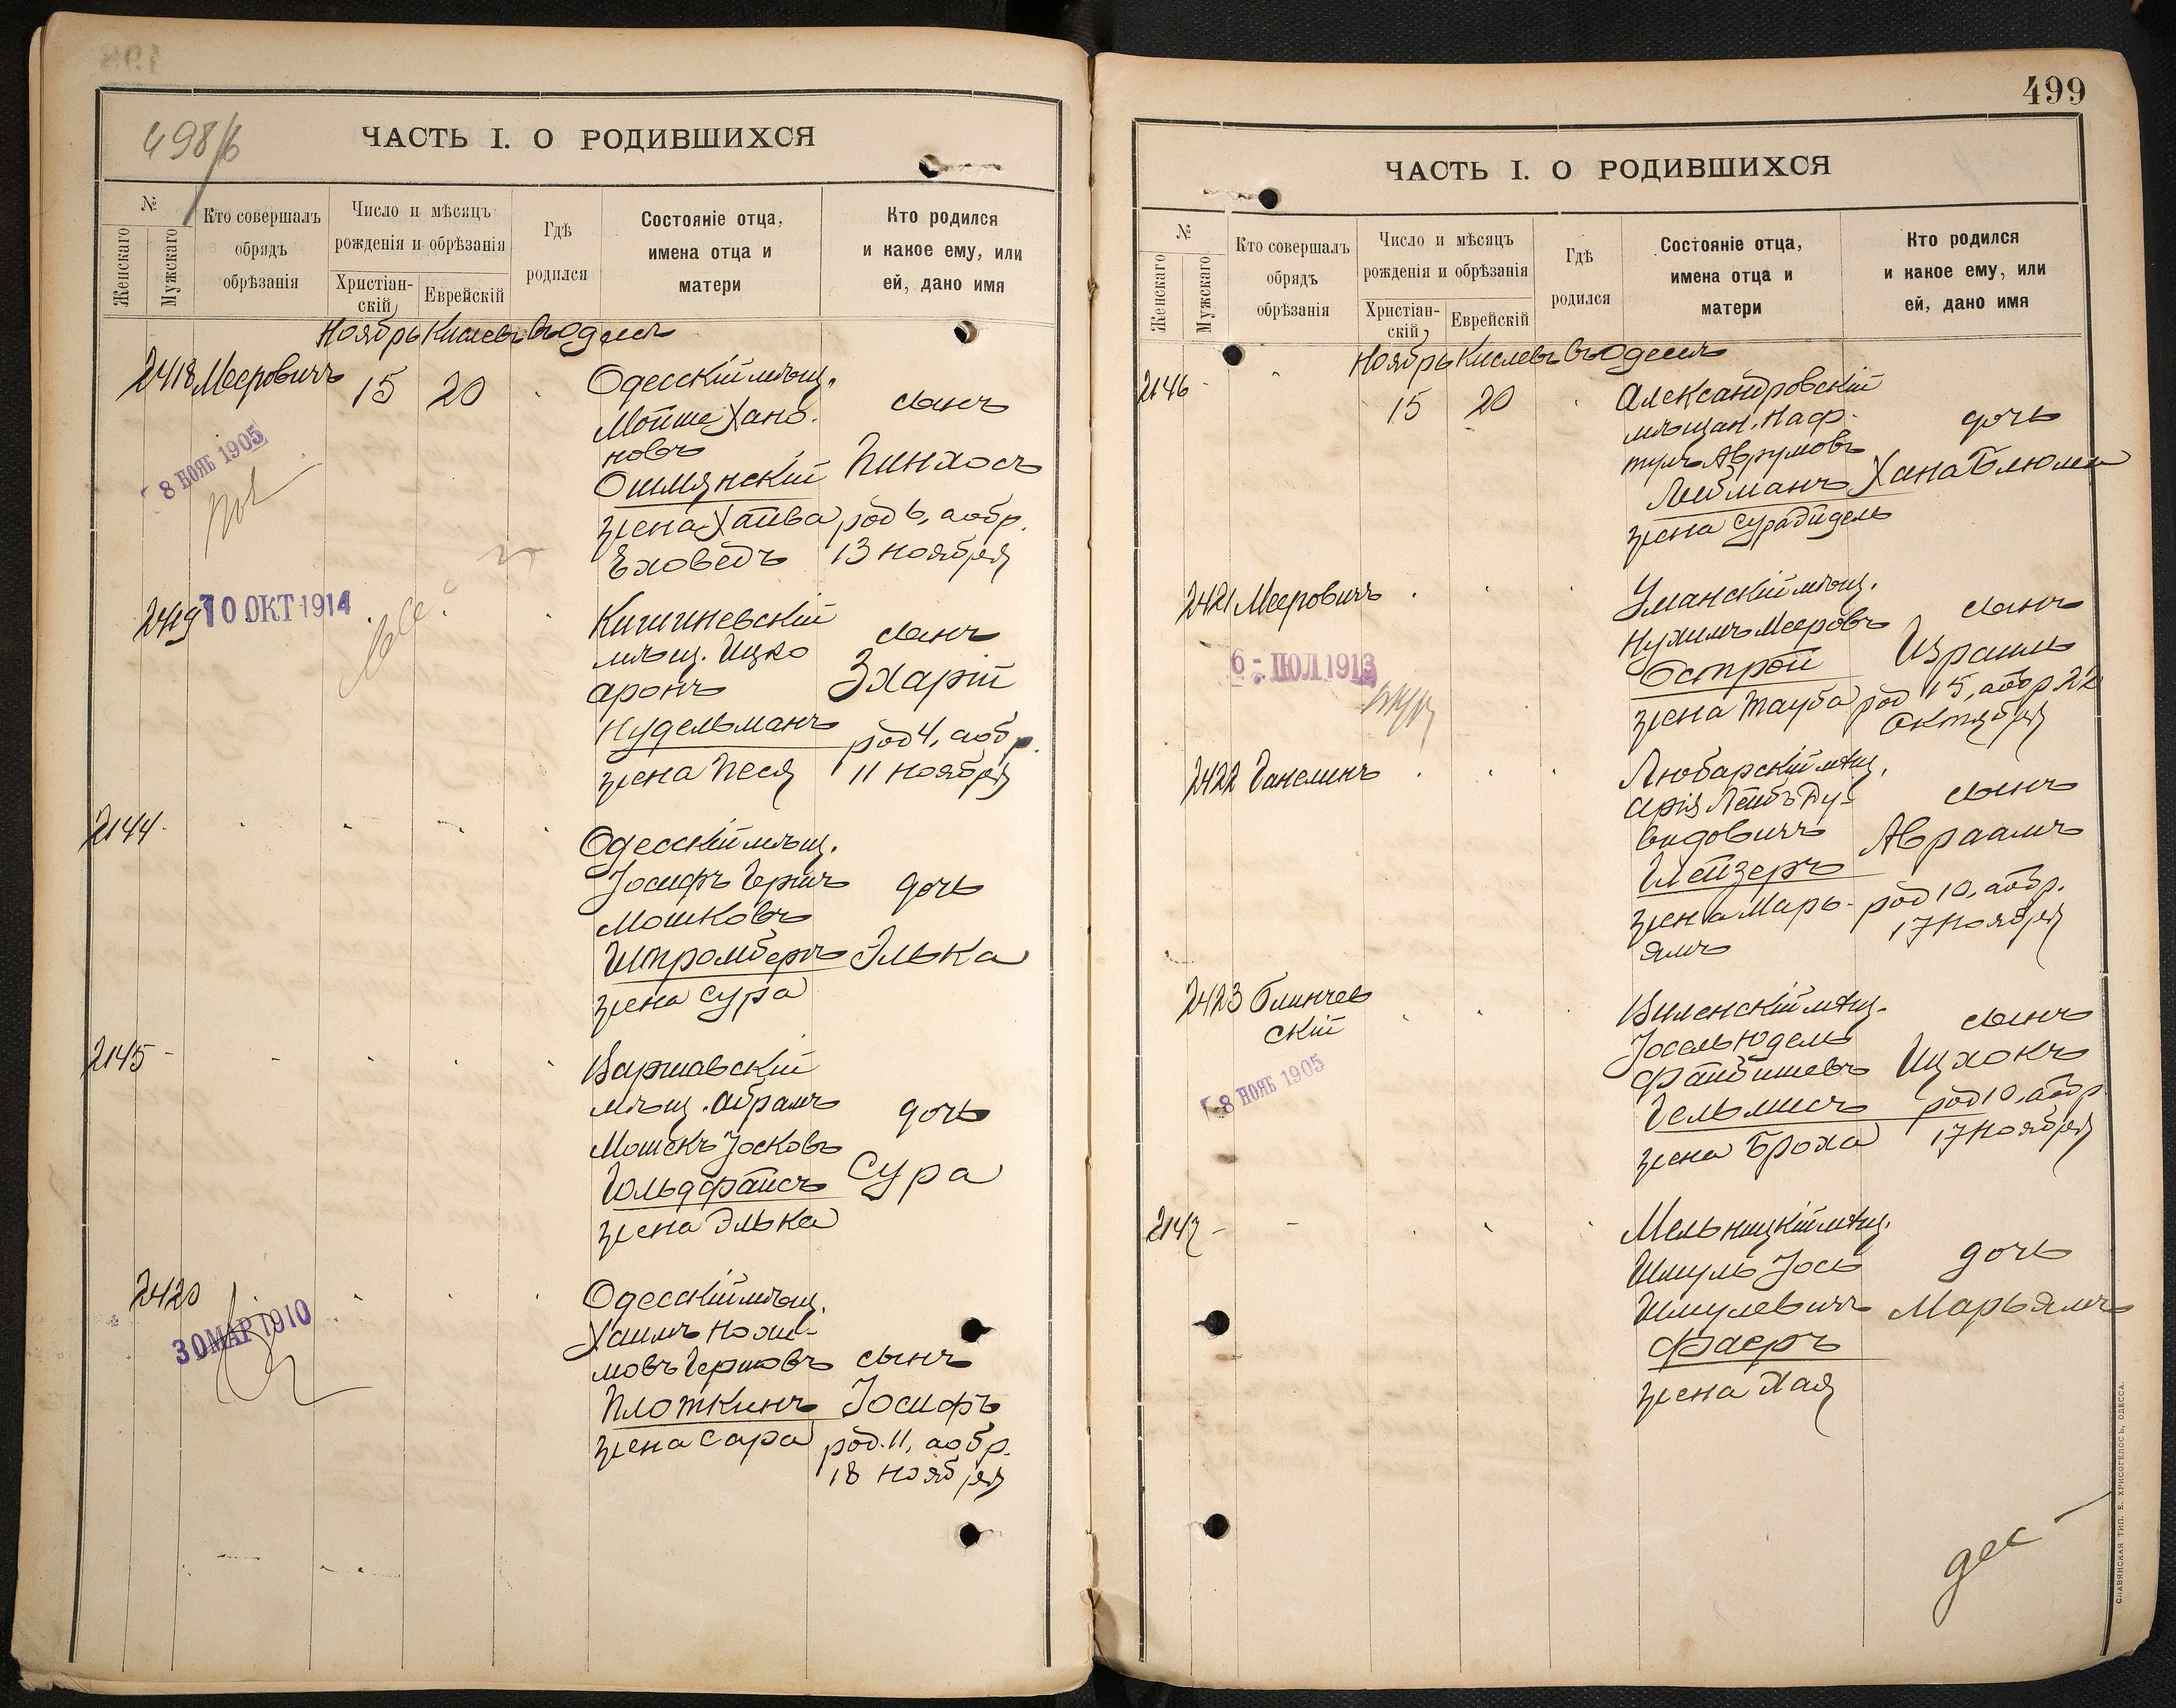 498/б
ЧАСТЬ I. О РОДИВШИХСЯ
№
Женскаго
Мужскаго
Кто совершалъ
обрядъ
обрѣзанія
Число и мѣсяцъ
рожденія и обрѣзанія
Христіан-
скій
Еврейскій
Гдѣ
родился
Состояніе отца,
имена отца и
матери
Кто родился
и какое ему, или
ей, дано имя
Ноябрь Кислевъ въ Одессѣ
2418 Мееровичъ 15 20
Одесскій мѣщ.
Мойше Хано-
новъ
Ошмянскій
жена Хайва
Еховедъ
сынъ
Пинхосъ
род 6, аобр.
13 ноября
8 НОЯБ 1905
2419
10 ОКТ 1914
Кишиневскій
мѣщ. Ицко
Аронъ
Нудельманъ
жена Песя
сынъ
Зхарій
род 4, аобр.
11 ноября
2144
Одесскій мѣщ.
Іосифъ Гершъ
Мошковъ
Штромбергъ
жена Сура
дочь
Элька
2145
Варшавскій
мѣщ. Абрамъ
Мошекъ Іосковъ
Гольдфайсъ
жена Элька
дочь
Сура
2420
30 МАР 1910
Одесскій мѣщ.
Хаимъ Нохи-
мовъ Гершовъ
Плоткинъ
жена Сара
сынъ
Іосифъ
род. 11, аобр.
18 ноября
499
ЧАСТЬ I. О РОДИВШИХСЯ
№
Женскаго
Мужскаго
Кто совершалъ
обрядъ
обрѣзанія
Число и мѣсяцъ
рожденія и обрѣзанія
Христіан-
скій
Еврейскій
Гдѣ
родился
Состояніе отца,
имена отца и
матери
Кто родился
и какое ему, или
ей, дано имя
Ноябрь Кислевъ въ Одессѣ
2146 15 20
Александровскій
мѣщан. Наф-
тулъ Аврумовъ
Лейманъ
жена Сура Айдель
дочь
Хана Блюма
2421 Мееровичъ
6 - ІЮЛ 1913
Уманскій мѣщ.
Нухимъ Мееровъ
Острой
жена Тауба
сынъ
Израиль
род 15, аобр 22
октября
2422 Ганелинъ
Любарскій мѣщ.
Арія Лейбъ Ду-
видовичъ
Шейзеръ
жена Марь-
ямъ
сынъ
Авраамъ
род 10, аобр.
17 ноября
2423 Блинчев
скій
8 НОЯБ 1905
Виленскій мѣщ.
Іосель Юдель
Файбишевъ
Гельмисъ
жена Броха
сынъ
Ицхокъ
род 10, аобр
17 ноября
2147
Мельницкій мѣщ.
Шмуль Іось
Шмулевичъ
Фаеръ
жена Хая
дочь
Марьямъ
СЛАВЯНСКАЯ ТИП. Е. ХРИСОГЕЛОСЪ, ОДЕССА.